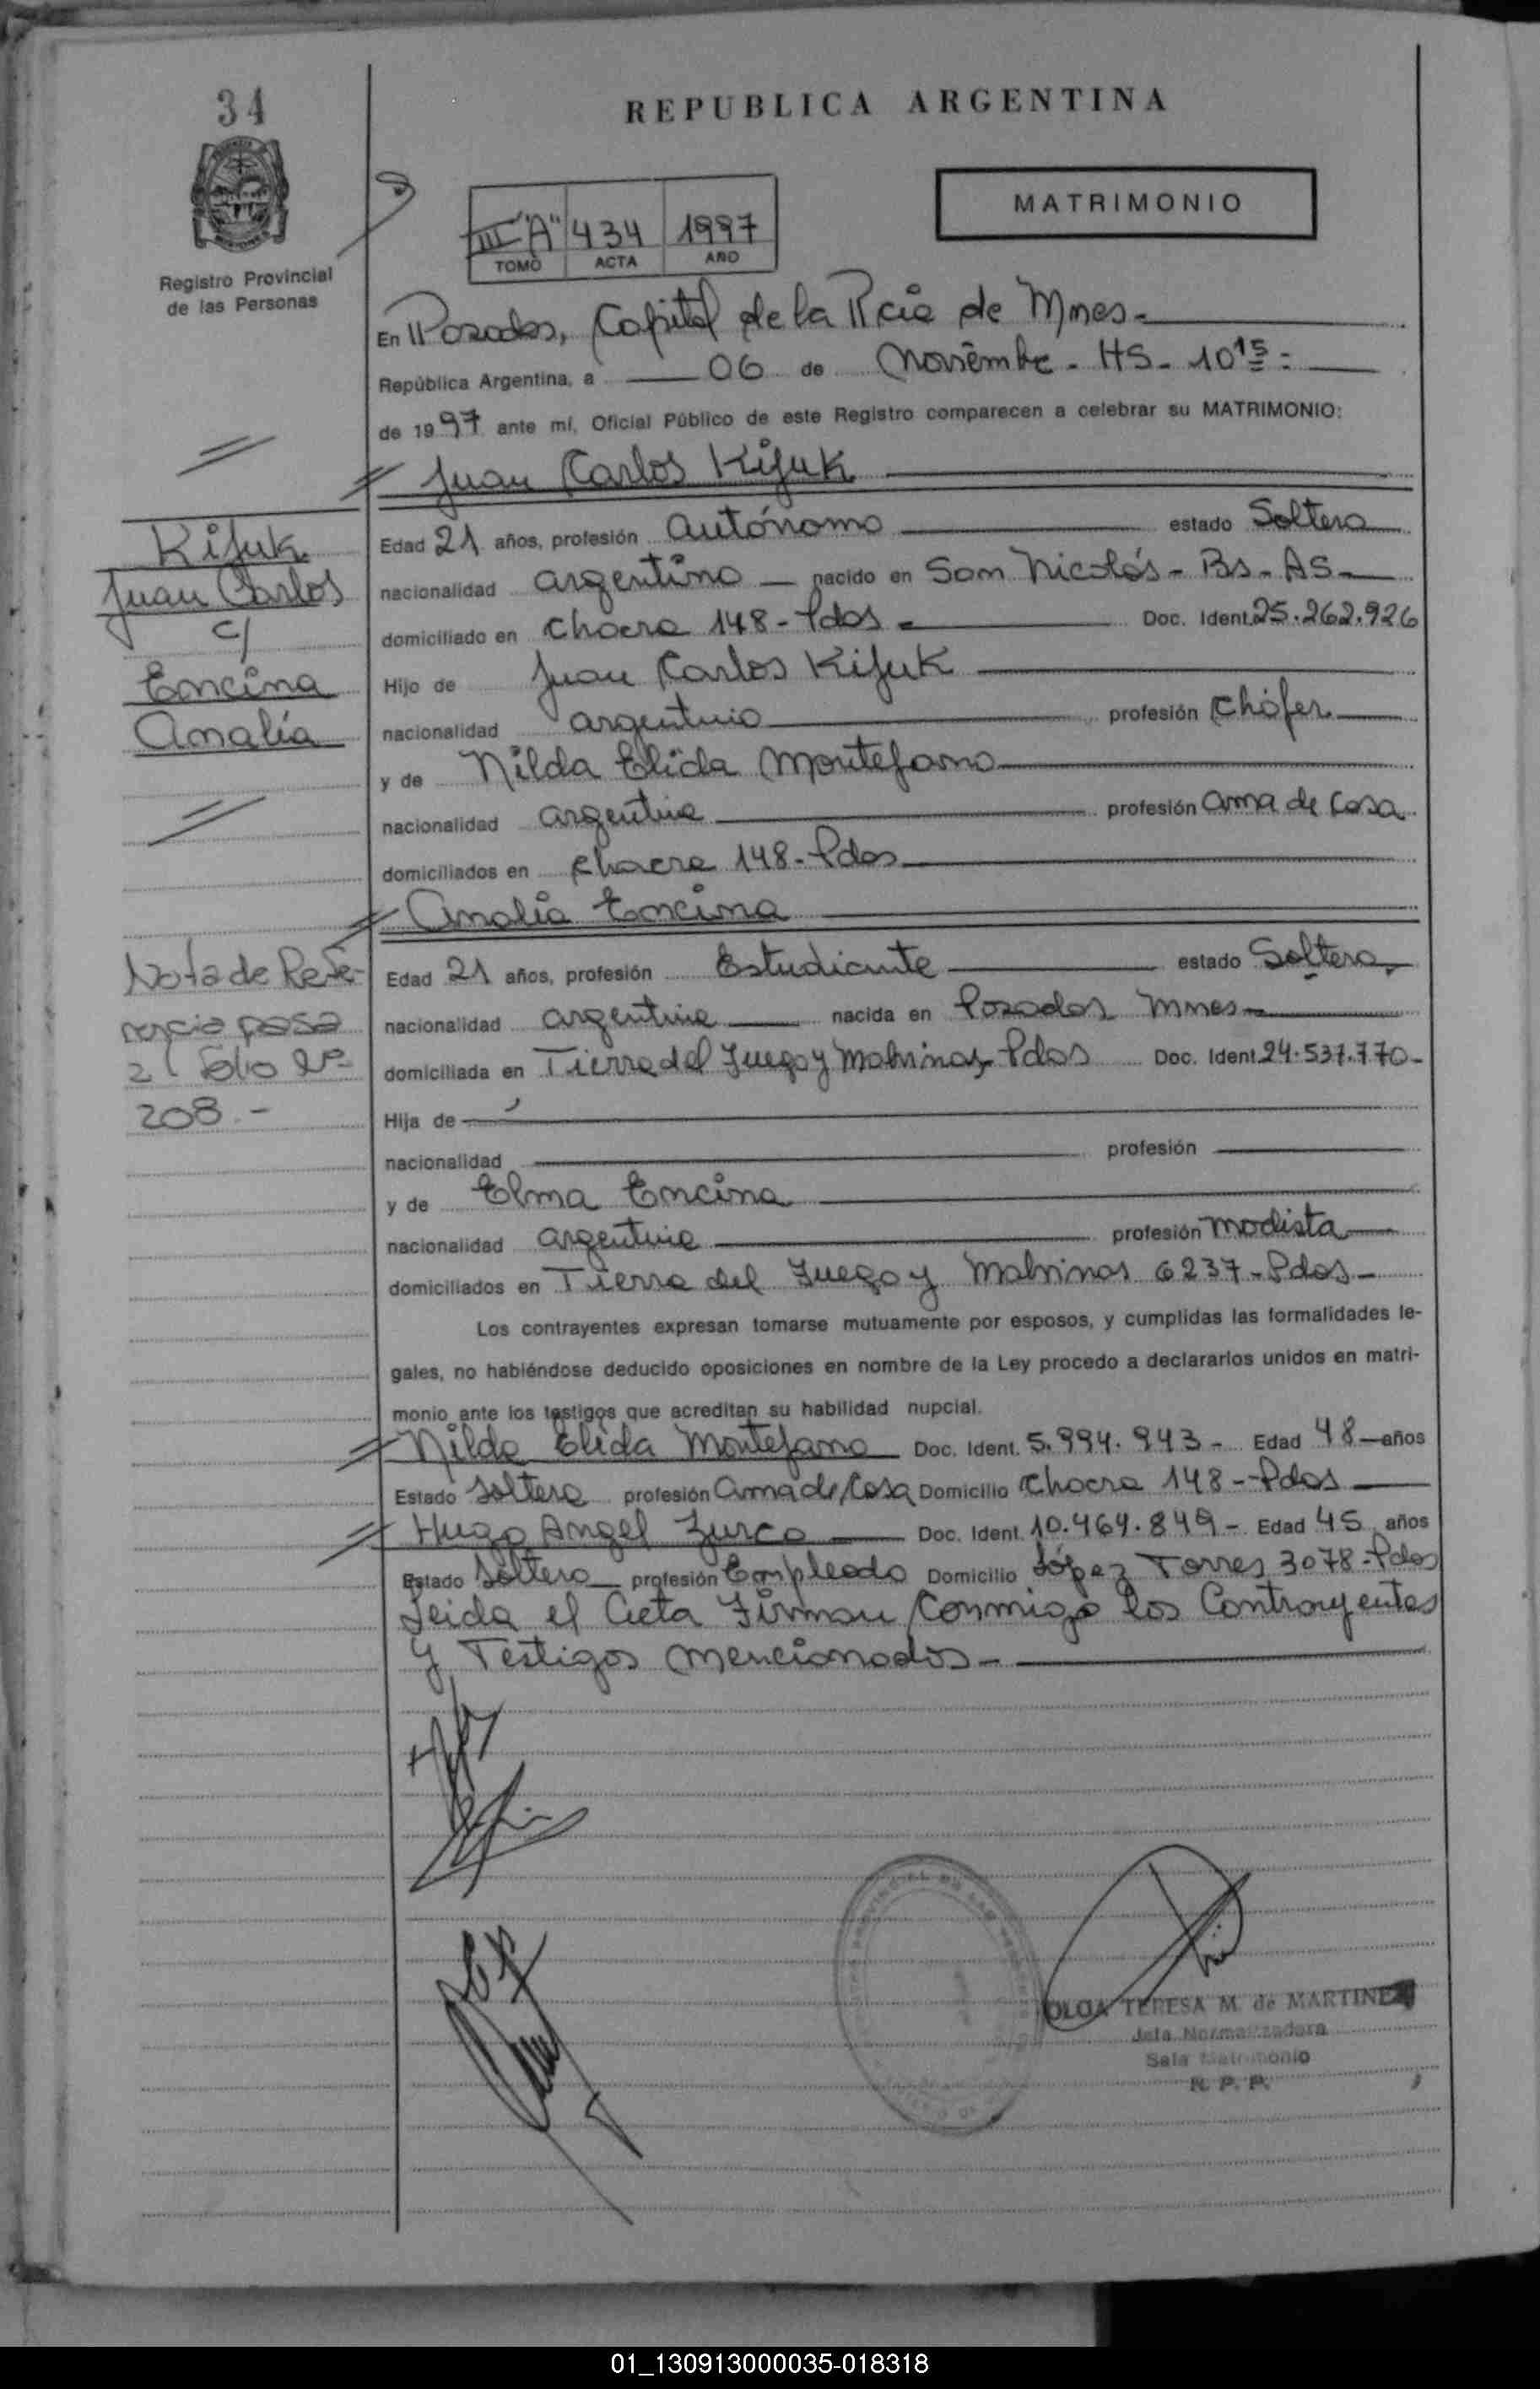 34
REPUBLICA ARGENTINA
MATRIMONIO
III "A" 434 1997
TOMO ACTA AÑO
Registro Provincial
de las Personas
En Posadas, Capital de la Pcia de Mnes.
República Argentina, a 06 de Noviembre - HS - 10 15 =
de 1997 ante mí, Oficial Público de este Registro comparecen a celebrar su MATRIMONIO:
Juan Carlos Kijuk
Edad 21 años, profesión Autónomo estado Soltero
nacionalidad argentino nacido en San Nicolás - Bs - AS
domiciliado en Chacra 148 - Pdas - Doc. Ident. 25.262.926
Hijo de Juan Carlos Kijuk
nacionalidad argentino profesión Chófer
y de Nilda Elida Montefano
nacionalidad argentina profesión ama de Casa
domiciliados en Chacra 148 - Pdas
Analía Encina
Edad 21 años, profesión Estudiante estado Soltera
nacionalidad argentina nacida en Posadas Mnes
domiciliada en Tierra del Fuego y Malvinas Pdas Doc. Ident. 24.537.770-
Hija de
nacionalidad profesión
y de Elma Encina
nacionalidad argentina profesión Modista
domiciliados en Tierra del Fuego y Malvinas 6237 - Pdas -
Los contrayentes expresan tomarse mutuamente por esposos, y cumplidas las formalidades le-
gales, no habiéndose deducido oposiciones en nombre de la Ley procedo a declararlos unidos en matri-
monio ante los testigos que acreditan su habilidad nupcial.
Nilda Elida Montefano Doc. Ident. 5.994.943 - Edad 48 años
Estado Soltera profesión Ama de Casa Domicilio Chacra 148 - Pdas
Hugo Angel Zurco Doc. Ident. 10.464.849 - Edad 45 años
Estado Soltero profesión Empleado Domicilio López Torres 3078 - Pdas
Leida el Acta Firman Conmigo los Contrayentes
y Testigos mencionados -
Kijuk
Juan Carlos
c/
Encina
Analía
Nota de Refe-
rencia pasa
al Folio Nº
208.-
OLGA TERESA M. de MARTINEZ
Jefa Normalizadora
Sala Matrimonio
R. P. P.
01_130913000035-018318